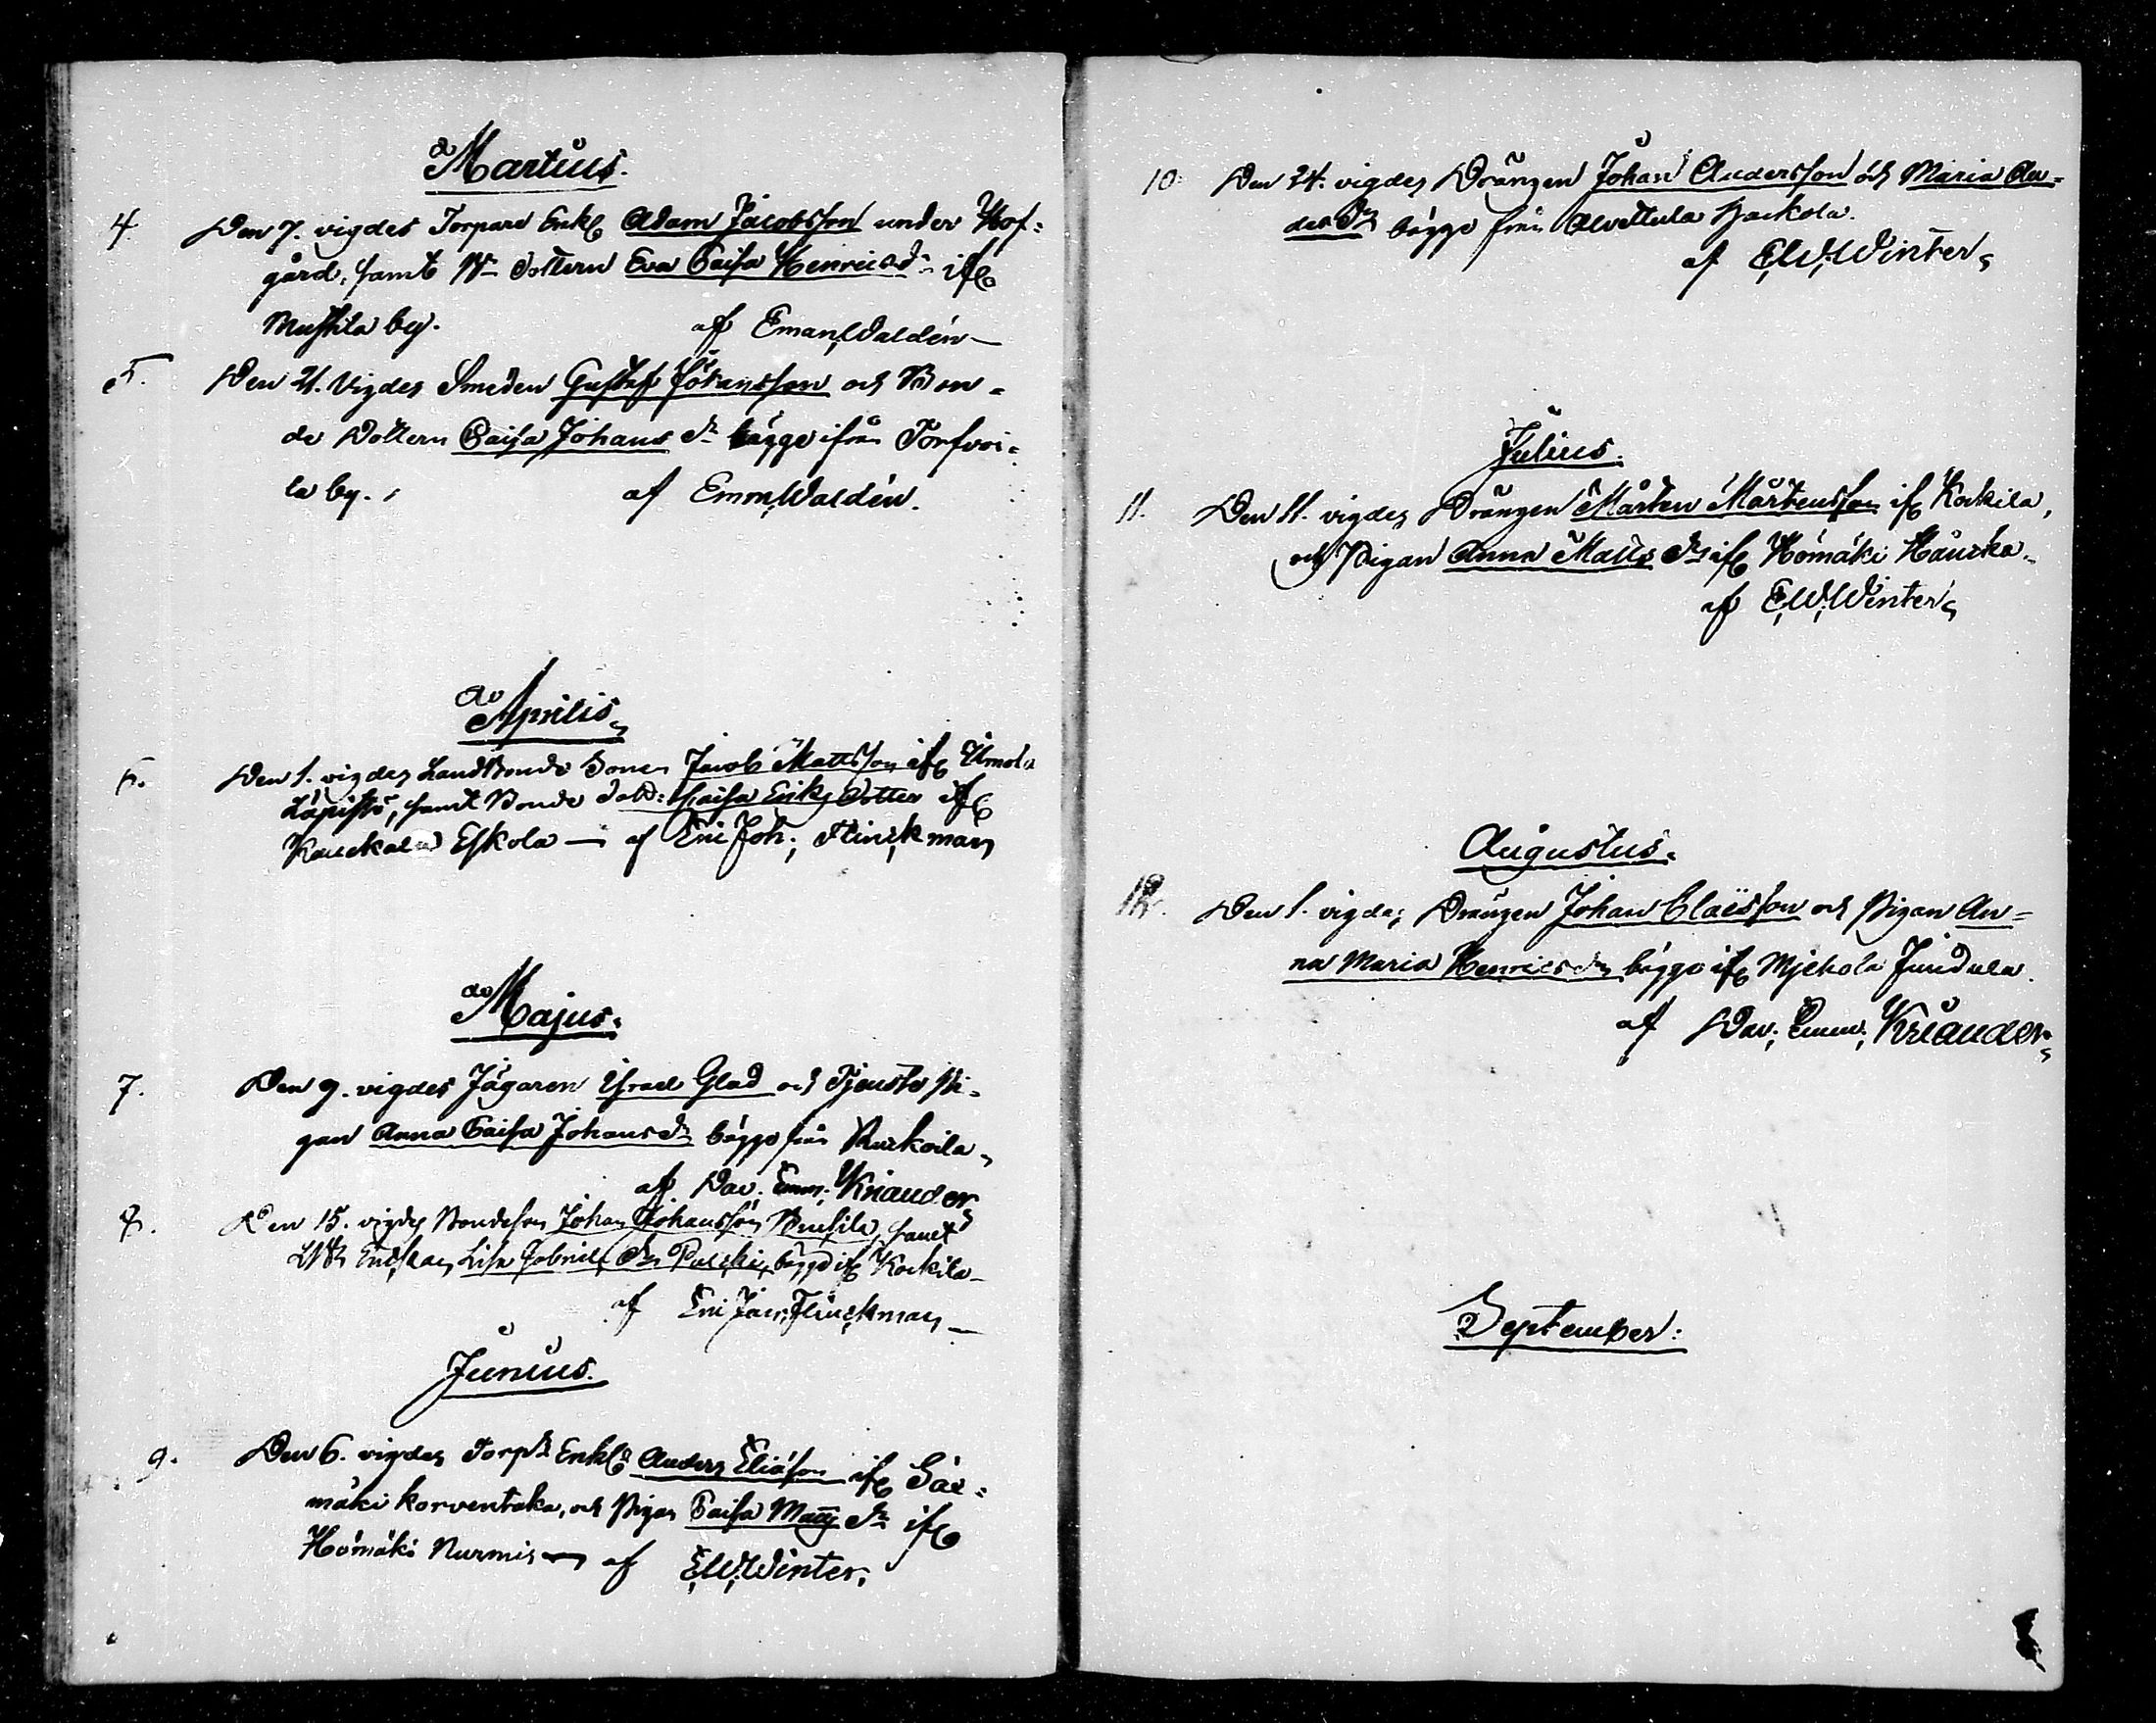 do Martius.
4. Den 7. vigdes Torpare Enkl. Adam Jacobsson under Hof=
gård, samt Bd dottern Eva Caisa Henricsdr ifr
Mustila by. af Eman. Waldén
5. Den 21. Vigdes Smeden Gustaf Johansson och Bon=
de Dottern Caisa Johans dr bägge ifrån Torfvoi=
la by. af Emm. Waldén.
do Aprilis
6. Den 1. vigdes Landbonde Sonen Jacob Mattsson ifr
samt Bonde Dott: Caisa Eriks dotter ifr
Kauckola Eskola af Eric Joh. Flinckman
do Majus.
7. Den 9. vigdes Jägaren Israel Glad och Tjenste Pi=
gan Anna Caisa Johansdr bägge från
af Dav. Emm. Kriander
8. Den 15. vigdes Bondeson Johan Johansson samt
Enkan Lisa Gabriels dr bägge ifr Kockila
af Eric Joh. Flinckman
Junius.
9. Den 6. vigdes Torpr Enkl. Anders Eliäson ifr Säx=
mäki korventaka, och Pigan Caisa Matts dr ifr
Homäki Nurmis af E.W. Winter.
10. Den 24. vigdes Drängen Johan Andersson och Maria An=
ders dr bägge från Alvettula Jackola.
af E.W. Winter
Julius.
11. Den 11. vigdes Drängen Mårten Mårtensson ifr Kockila,
och Pigan Anna Matts dr ifr Homäki Haurka
af E.W. Winter
Augustus.
12. Den 1. vigdes Drängen Johan Claësson och Pigan An=
na Maria Henricsdr bägge ifr Mjehola Jundula.
af Dav. Emm. Kriander
September: